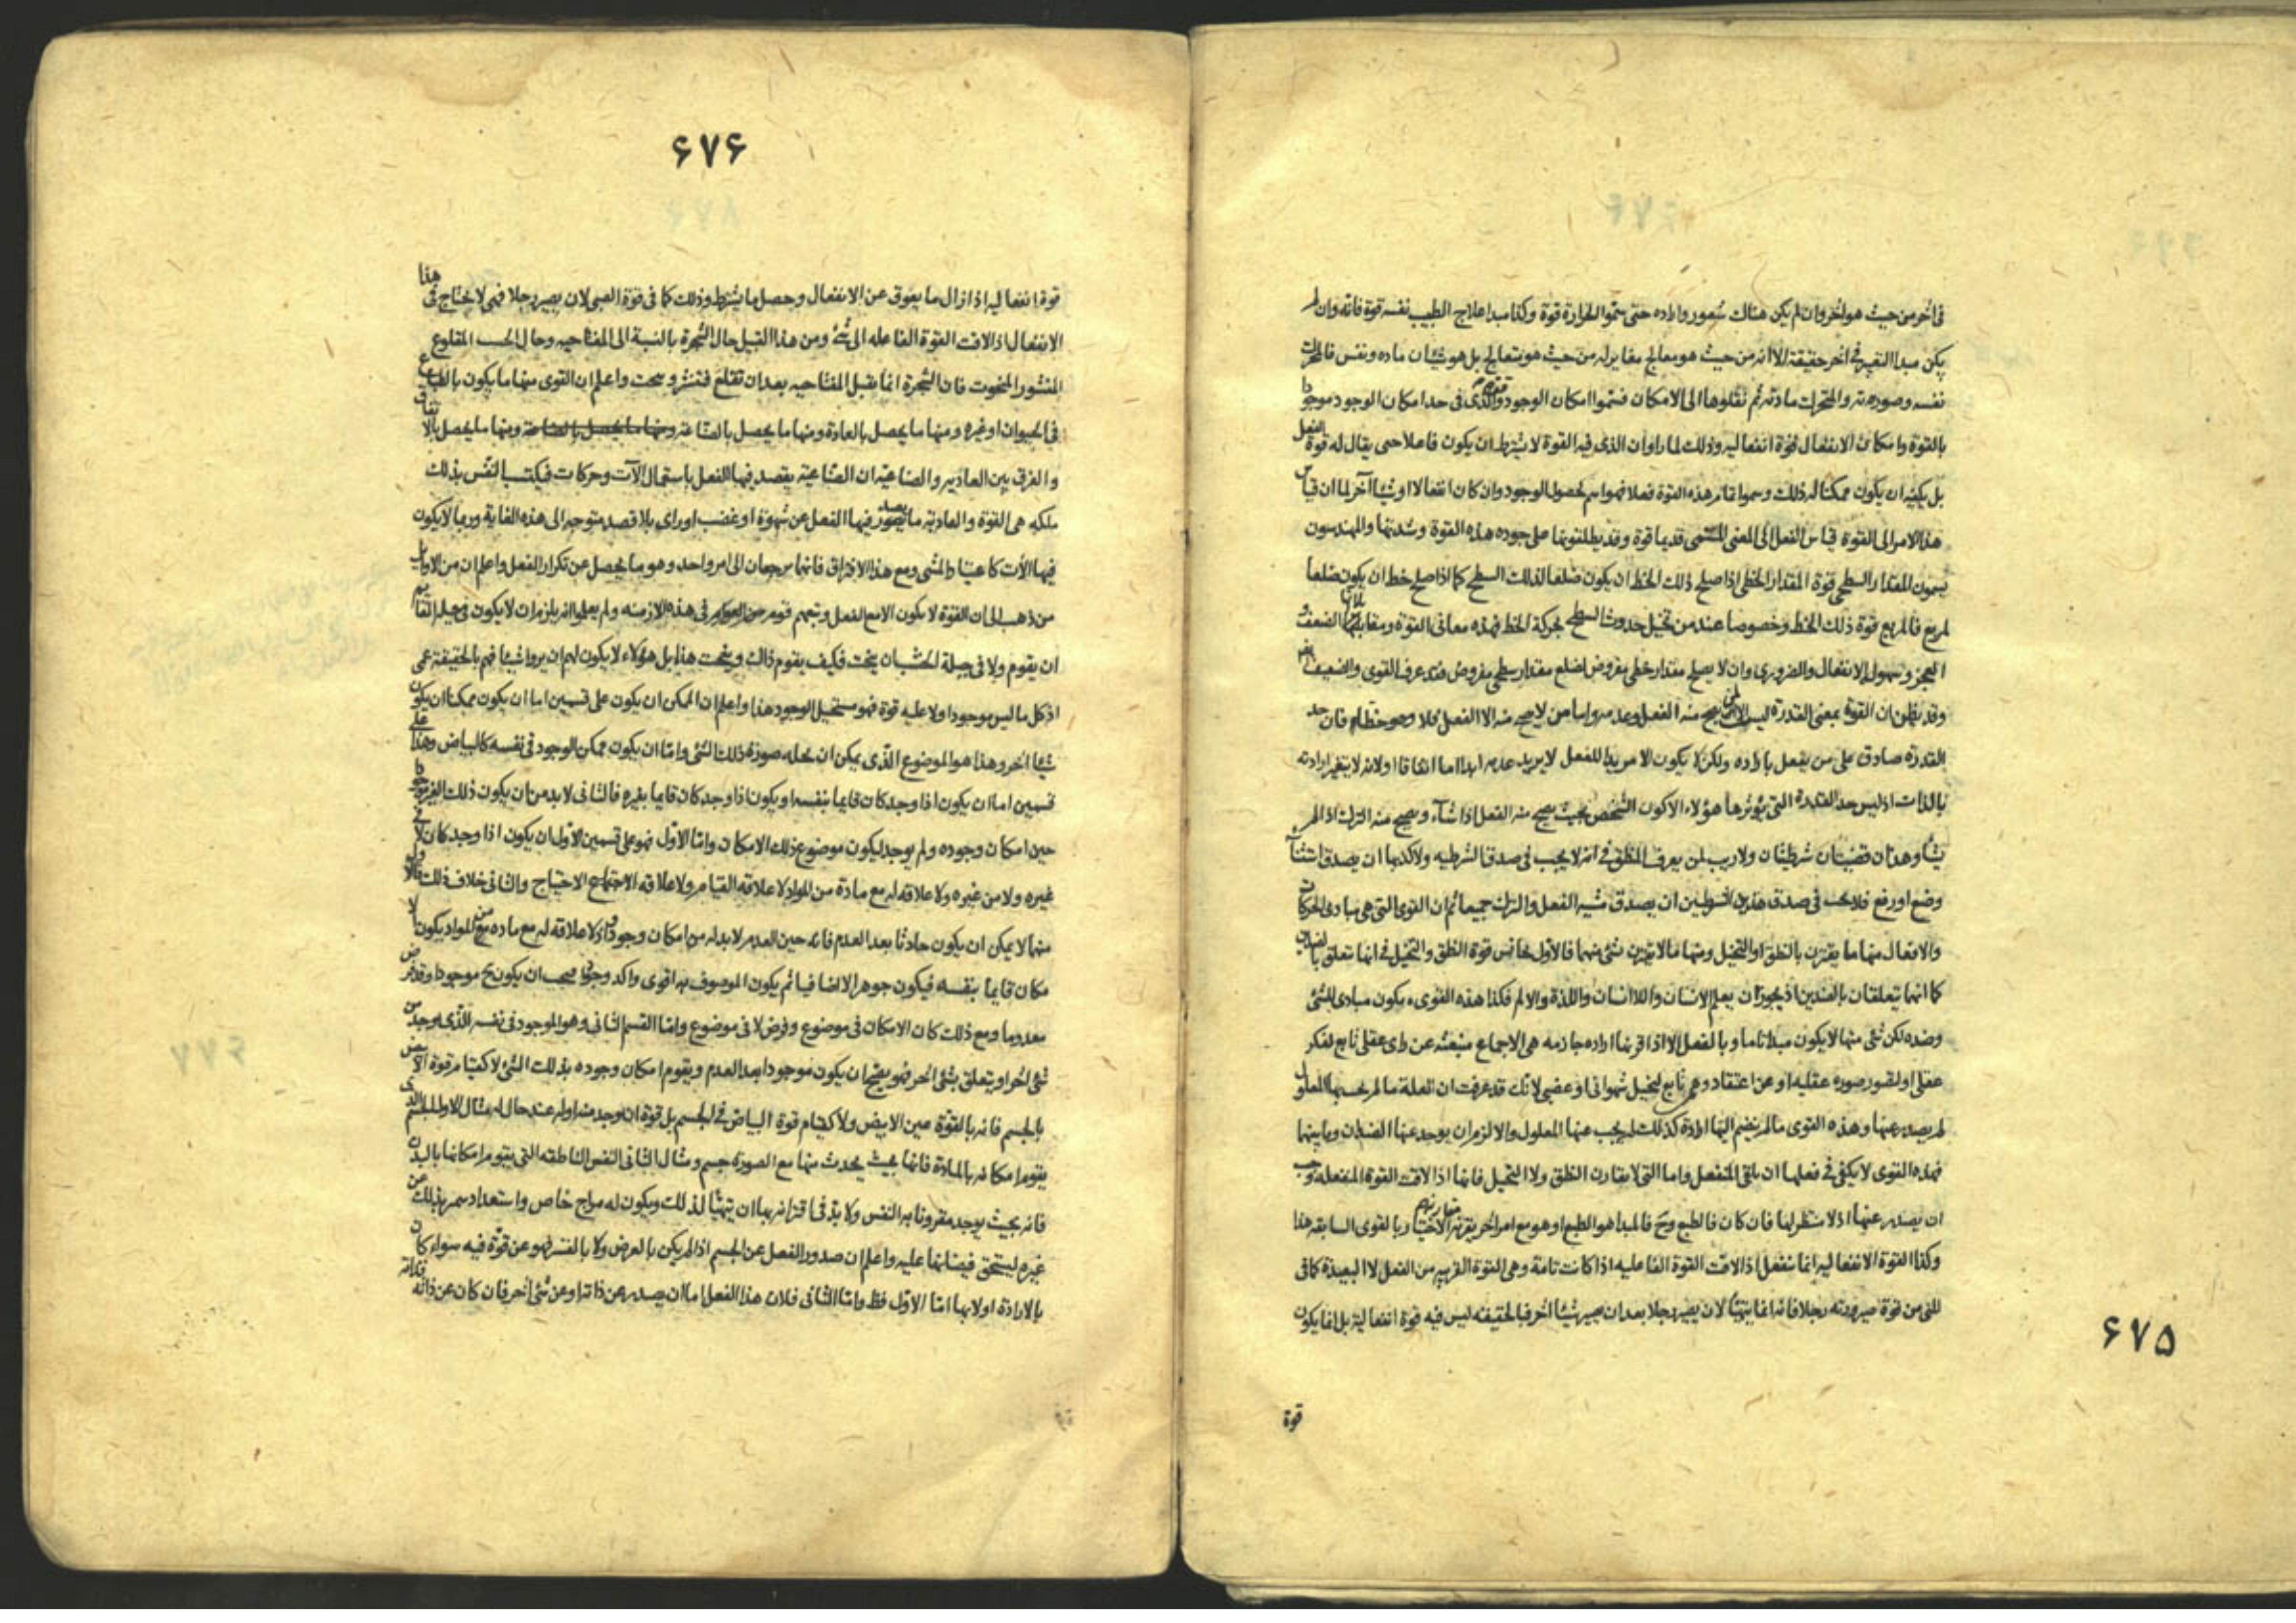 فى آخر من حيث هو آخر وان لم يكن هناك شعور وارادة حتى سموا الحرارة قوة وكذا مبدا علاج الطبيب نفسه قوة فانه وان لم
يكن مبدا التغير فى آخر حقيقة الا انه من حيث هو معالج مغاير له من حيث هو متعالج بل هو شيئان مادة ونفس فالمحرك
نفسه وصورته والمتحرك مادته ثم نقلوها الى الامكان فسموا امكان الوجود والذى فى حد امكان الوجود موجودا
بالقوة وامكان الانفعال قوة انفعالية وذلك لما راوا ان الذى فيه القوة لا يشترط ان يكون فاعلا حتى يقال له قوة الفعل
بل يكفيه ان يكون ممكنا له ذلك وسموا تمام هذه القوة فعلا فهو اسم لحصول الوجود وان كان انفعالا او شيئا آخر لما ان قياس
هذا الامر الى القوة قياس الفعل الى المعنى المسمى قديما قوة وقد يطلقونها على جودة هذه القوة وشدتها والمهندسون
يسمون المقدار السطحى قوة المقدار الخطى اذا صلح ذلك الخط ان يكون ضلعا لذلك السطح كما اذا صلح خط ان يكون ضلعا
لمربع فالمربع قوة ذلك الخط وخصوصا عند من تخيل حدوث السطح بحركة الخط فهذه معانى القوة ومقابلاتها الضعف و
العجز وسهولة الانفعال والضرورى وان لا يصلح مقدار خطى مفروض لضلع مقدار سطحى مفروض فقد عرف القوى والضعيف
وقد يظن ان القوة بمعنى القدرة ليس الا لمن يصح منه الفعل وعدمه واما من لا يصح منه الا الفعل فلا وهو خطا فان حد
القدرة صادق على من يفعل بارادة ولكن لا يكون الا مريدا للفعل لا يريد عدمه ابدا اما اتفاقا او لانه لا يتغير ارادته
بالذات اذ ليس حد القدرة التى يؤثرها هؤلاء الا كون الشخص بحيث يصح منه الفعل اذا شاء ويصح منه الترك اذا لم
يشا وهذان قضيتان شرطيتان ولا ريب لمن يعرف المنطق فى انه لا يجب فى صدق الشرطية ولا كذبها ان يصدق استثناء
وضع او رفع فلا يجب فى صدق هذين الشرطين ان يصدق مشية الفعل والترك جميعا ثم ان القوى التى هى مبادى الحركات
والافعال منها ما يقترن بالنطق او التخيل ومنها ما لا يقترن بشئ منهما فالاول يجانس قوة النطق والتخيل فى انها تتعلق بالضدين
كما انهما يتعلقان بالضدين اذ يجوز ان يعلم الانسان واللاانسان واللذة والالم فكذا هذه القوى يكون مبادى للشئ
وضده لكن شئ منها لا يكون مبدا تاما وبالفعل الا اذا اقرنها ارادة جازمة هى الاجماع منبعثة عن راى عقلى تابع لفكر
عقلى او لتصور صورة عقلية او عن اعتقاد وهمى تابع لتخيل شهوانى او غضبى لانك قد عرفت ان العلة ما لم يجب بها المعلول
لم يصدر عنها وهذه القوى ما لم ينضم اليها ارادة كذلك لم يجب عنها المعلول والا لزم ان يوجد عنها الضدان وما بينهما
فهذه القوى لا يكفى فى فعلها ان يلقى المنفعل واما التى لا يقارن النطق ولا التخيل فانها اذا لاقت القوة المنفعلة وجب
ان يصدر عنها اذ لا منتظر لها فان كان فالطبع وح فالمبدا هو الطبع او هو مع امر آخر يقربه الاختيار بالقوى السابقة هذا
وكذا القوة الانفعالية انما تنفعل اذا لاقت القوة الفاعلية اذا كانت تامة وهى القوة القريبة من الفعل لا البعيدة كما فى
المنى من قوة صيرورته رجلا فانه انما يتهيا لان يصير رجلا بعد ان يصير شيئا آخر فبالحقيقة ليس فيه قوة انفعالية بل انما يكون
قوة
۶۷۵
۶۷۶
هذا
قوة انفعالية اذا زال ما يعوق عن الانفعال وحصل ما يشترط وذلك كما فى قوة الصبى لان يصير رجلا فهى لا يحتاج فى
الانفعال اذا لاقت القوة الفاعلة الى شئ ومن هذا القبيل حال الشجرة بالنسبة الى المفتاحية وحال الخشب المقلوع
المنشور المنحوت فان الشجرة انما يقبل المفتاحية بعد ان تقلع فتنشر وينحت واعلم ان القوى منها ما يكون بالطباع
فى الحيوان او غيره ومنها ما يحصل بالعادة ومنها ما يحصل بالصناعة ومنها ما يحصل بالصناعة ومنها ما يحصل بالاتفاق
والفرق بين العادية والصناعية ان الصناعية يقصد فيها الفعل باستعمال آلات وحركات فيكتسب النفس بذلك
ملكة هى القوة والعادية ما يصدر فيها الفعل عن شهوة او غضب او راى بلا قصد متوجه الى هذه الغاية وربما لا يكون
فيها آلات كاعتياد المشى ومع هذا الافتراق فانهما يرجعان الى امر واحد وهو ما يحصل عن تكرار الفعل واعلم ان من الاوايل
من ذهب الى ان القوة لا يكون الا مع الفعل وتبعهم قوم فى هذه الازمنة ولم يعلموا انه يلزم ان لا يكون فى جبلة القايم
ان يقوم ولا فى جبلة الخشب ان ينحت فكيف يقوم ذاك وينحت هذا بل هؤلاء لا يكون لهم ان يروا شيئا فهم بالحقيقة عمى
اذ كل ما ليس موجودا ولا عليه قوة فهو مستحيل الوجود هذا واعلم ان الممكن ان يكون على قسمين اما ان يكون ممكنا ان يكون
شيئا آخر وهذا هو الموضوع الذى يمكن ان يحله صورة ذلك الشئ واما ان يكون ممكن الوجود فى نفسه كالبياض وهذا على
قسمين اما ان يكون اذا وجد كان قايما بنفسه او يكون اذا وجد كان قايما بغيره فالثانى لا بد من ان يكون ذلك الغير موجودا
حين امكان وجوده ولم يوجد ليكون موضوع ذلك الامكان واما الاول فهو على قسمين الاول ان يكون اذا وجد كان لا فى
غيره ولا من غيره ولا علاقة له مع مادة من المواد لا علاقة القيام ولا علاقة الاحتياج والثانى خلاف ذلك فالاول
منهما لا يمكن ان يكون حادثا بعد العدم فانه حين العدم لا بد له من امكان وجود واذ لا علاقة له مع مادة من المواد يكون
مكان قايما بنفسه فيكون جوهرا لا اضافيا ثم يكون الموصوف به اقوى واكد وجودا فيجب ان يكون ح موجودا وقد فرض
معدوما ومع ذلك كان الامكان فى موضوع وفرض لا فى موضوع واما القسم الثانى وهو الموجود فى نفسه الذى يوجد من
شئ آخر او يتعلق بشئ آخر فهو يصح ان يكون موجودا بعد العدم ويقوم امكان وجوده بذلك الشئ لا كقيام قوة الابيض
بالجسم فانه بالقوة عين الابيض ولا كقيام قوة البياض فى الجسم بل قوة ان يوجد منه او له عند حال له مثال الاول الجسم الذى
يقوم امكانه بالمادة فانها بحيث يحدث منها مع الصورة جسم ومثال الثانى النفس الناطقة التى يقوم امكانها بالبدن
فانه بحيث يوجد مقرونا به النفس ولا بد فى اقترانه بها ان يتهيا لذلك ويكون له مزاج خاص واستعداد يتميز بذلك عن
غيره ليستحق فيضانها عليه واعلم ان صدور الفعل عن الجسم اذا لم يكن بالعرض ولا بالقسر فهو عن قوة فيه سواء كان
بالارادة او لا بها اما الاول فظ واما الثانى فلان هذا الفعل اما ان يصدر عن ذاته او عن شئ آخر فان كان عن ذاته